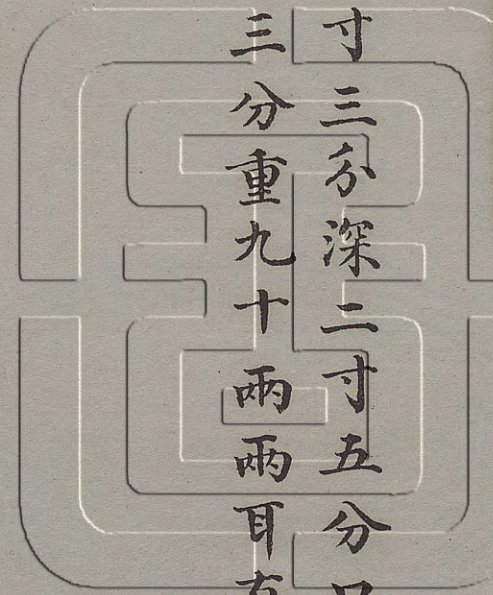 寸三分深二寸五分口
三分重九十兩兩耳有